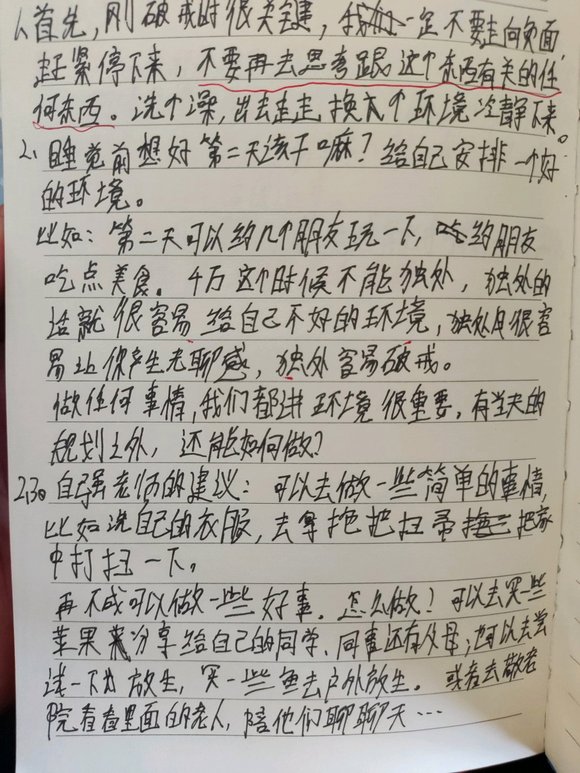 1、首先,刚破戒时很关键,我们一定不要走向负面
赶紧停下来,不要再去思考跟这个东西有关的任
何东西。洗个澡,出去走走换个环境冷静下来。
2、睡觉前想好第二天该干嘛?给自己安排一个好
的环境。
比如:第二天可以约几个朋友玩一下,约朋友
吃点美食。千万这个时候不能独处,独处的
话就很容易给自己不好的环境,独处且很容
易让你产生无聊感,独处容易破戒。
做任何事情,我们都讲环境很重要,有当天的
规划之外,还能如何做?
3。自强老师的建议:可以去做一些简单的事情,
比如洗自己的衣服,去拿拖把扫帚把家
中打扫一下。
再不成可以做一些好事。怎么做?可以去买一些
苹果来分享给自己的同学、同事还有父母;也可以去尝
试一下放生,买一些鱼去户外放生。或者去敬老
院看看里面的老人,陪他们聊聊天…